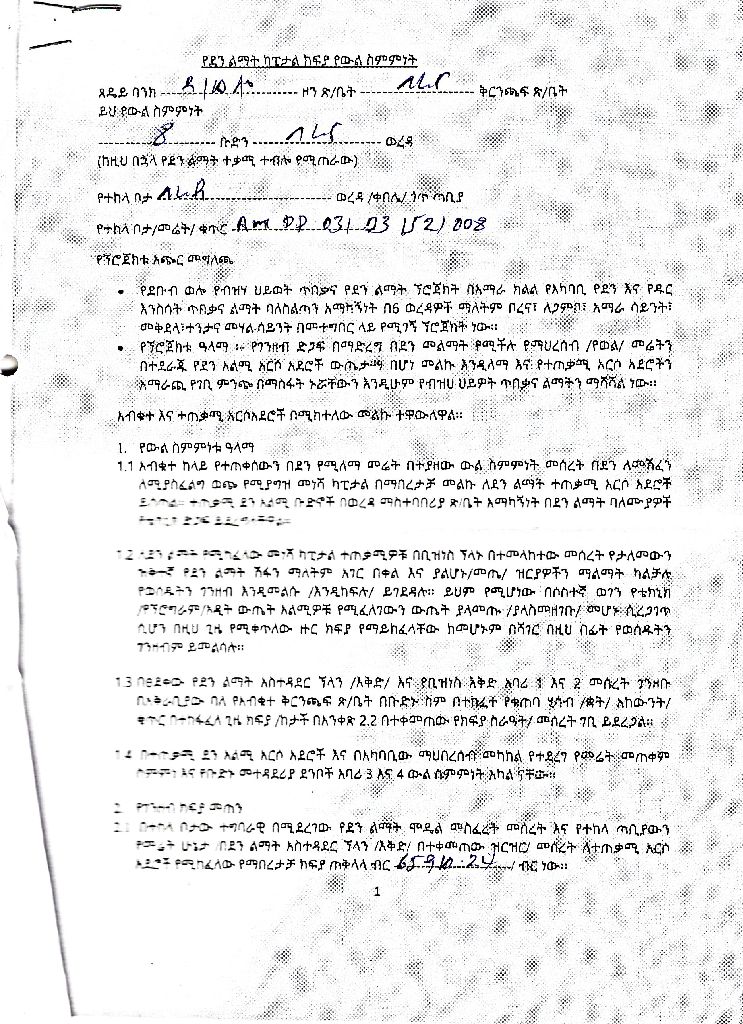 የደን ልማት ካፒታል ክፍያ የውል ስምምነት
ጸዴይ ባንክ ዞን ጽ/ቤት ቅርንጫፍ ጽ/ቤት
ይህ የውል ስምምነት
8 ቡድን ወረዳ
(ከዚህ በኋላ የደን ልማት ተቃሚ ተብሎ የሚጠራው)
የተከላ ቦታ ወረዳ /ቀበሌ/ ጎጥ ጣቢያ
የተከላ ቦታ/መሬት/ ቁጥር Am DD 03/ 03 /52/ 008
የኘሮጀክቱ አጭር መግለጫ
• የደቡብ ወሎ የብዝሃ ህይወት ጥበቃና የደን ልማት ኘሮጀክት በአማራ ክልል የአካባቢ የደን እና የዱር
እንስሳት ጥበቃና ልማት ባለስልጣን አማካኝነት በ6 ወረዳዎች ማለትም በረና፣ ለጋምቦ፣ አማራ ሳይንት፣
መቅደላ፣ተንታና መሃል ሳይንት በመተግበር ላይ የሚገኝ ኘሮጀክት ነው።
• የኘሮጀክቱ ዓላማ ፡- የገንዘብ ድጋፍ በማድረግ በደን መልማት የሚችሉ የማህረሰብ /የወል/ መሬትን
በተደራጁ የደን አልሚ አርሶ አደሮች ውጤታማ በሆነ መልኩ እንዲለማ እና የተጠቃሚ አርሶ አደሮችን
አማራጪ የገቢ ምንጭ በማስፋት ኑሯቸውን እንዲሁም የብዝሀ ህይዎት ጥበቃና ልማትን ማሻሻል ነው።
አብቁተ እና ተጠቃሚ አርሶአደሮች በሚከተለው መልኩ ተዋውለዋል።
1. የውል ስምምነቱ ዓላማ
1.1 አብቁተ ከላይ የተጠቀሰውን በደን የሚለማ መሬት በተያዘው ውል ስምምነት መሰረት በደን ለመሸፈን
ለሚያስፈልግ ወጭ የሚያግዝ መነሻ ካፒታል በማበረታቻ መልኩ ለደን ልማት ተጠቃሚ አርሶ አደሮች
ይሰጣል። ተጠቃሚ ደን አልሚ ቡድኖች በወረዳ ማስተባበሪያ ጽ/ቤት አማካኝነት በደን ልማት ባለሙያዎች
ድጋፍ
1.2 ደን ልማት የሚከፈለው መነሻ ካፒታል ተጠቃሚዎቹ በቢዝነስ ኘላኑ በተመላከተው መሰረት የታለመውን
የደን ልማት ሽፋን ማለትም አገር በቀል እና ያልሆኑ/መጤ/ ዝርያዎችን ማልማት ካልቻሉ
የወሰዱትን ገንዘብ እንዲመልሱ /እንዲከፍሉ/ ይገደዳሉ። ይህም የሚሆነው በሶስተኛ ወገን የቴክኒክ
/የኘሮግራም/ኦዲት ውጤት አልሚዎቹ የሚፈለገውን ውጤት ያላመጡ /ያላስመዘገቡ/ መሆኑ ሲረጋገጥ
ሲሆን በዚህ ጊዜ የሚቀጥለው ዙር ክፍያ የማይከፈላቸው ከመሆኑም በሻገር በዚህ ስፊት የወሰዱትን
ገንዘብም ይመልሳሉ።
1.3 በፀደቀው የደን ልማት አስተዳደር ኘላን /እቅድ/ እና የቢዝነስ እቅድ አባሪ 1 እና 2 መሰረት ገንዘቡ
በአቅራቢያው ባለ የአብቁተ ቅርንጫፍ ጽ/ቤት በቡድኑ ስም በተከፈተ የቁጠባ ሂሳብ /ቋት/ አካውንት/
ቁጥር በተከፋፈለ ጊዜ ክፍያ /ከታች በአንቀጽ 2.2 በተቀመጠው የክፍያ ስራዓት/ መሰረት ገቢ ይደረጋል።
1.4 በተጠቃሚ ደን አልሚ አርሶ አደሮች እና በአካባቢው ማህበረሰብ መካከል የተደረገ የመሬት መጠቀም
ስምምነት እና የቡድኑ መተዳደሪያ ደንቦች አባሪ 3 እና 4 ውል ስምምነት አካል ናቸው።
2. የገንዘብ ክፍያ መጠን
2.1 በተከላ ቦታው ተግባራዊ በሚደረገው የደን ልማት ሞዴል መስፈረት መሰረት እና የተከላ ጣቢያውን
የመሬት ሁኔታ በደን ልማት አስተዳደር ኘላን /እቅድ/ በተቀመጠው ዝርዝር/ መሰረት ለተጠቃሚ አርሶ
አደሮች የሚከፈለው የማበረታቻ ክፍያ ጠቅላላ ብር / ብር ነው።
1